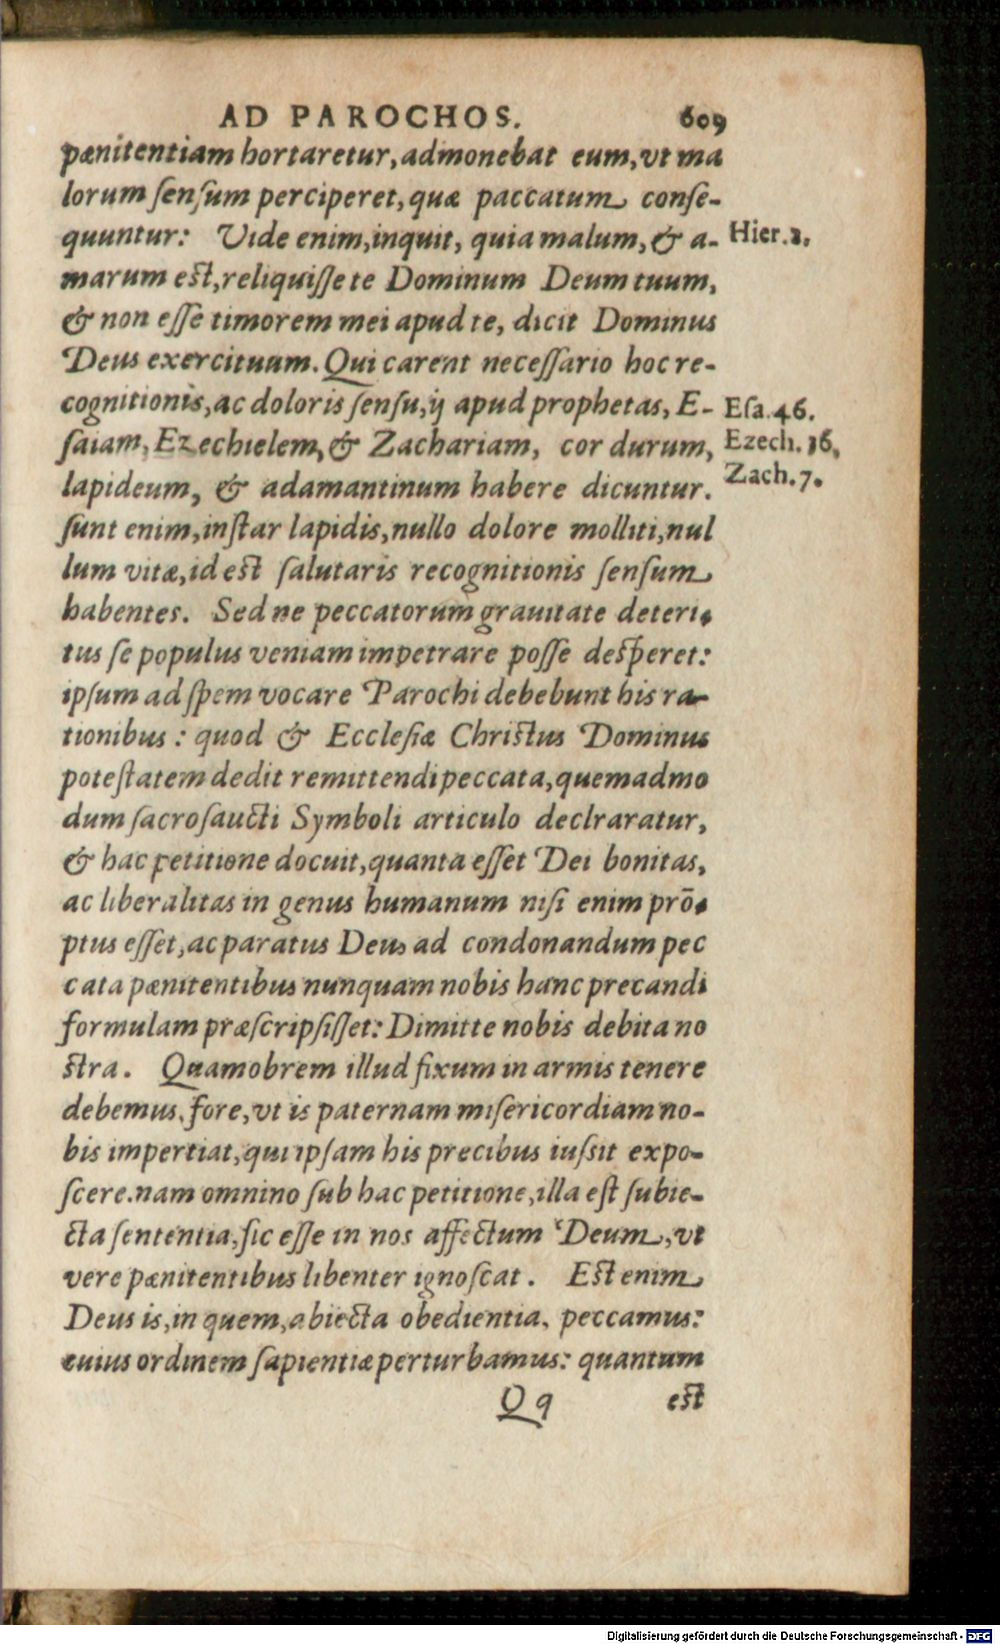 AD PAROCHOS. 609
pænitentiam hortaretur, admonebat eum, vt ma
lorum ſenſum perciperet, quæ paccatum conſe-
quuntur: Vide enim, inquit, quia malum, & a- Hier. 2.
marum eſt, reliquiſſe te Dominum Deum tuum,
& non eſſe timorem mei apud te, dicit Dominus
Deus exercituum. Qui carent neceſſario hoc re-
cognitionis, ac doloris ſenſu, ij apud prophetas, E- Eſa. 46.
ſaiam, Ezechielem, & Zachariam, cor durum, Ezech. 36,
lapideum, & adamantinum habere dicuntur. Zach. 7.
ſunt enim, inſtar lapidis, nullo dolore molliti, nul
lum vitæ, id eſt ſalutaris recognitionis ſenſum
habentes. Sed ne peccatorum grauitate deteri-
tus ſe populus veniam impetrare poſſe deſperet:
ipſum ad ſpem vocare Parochi debebunt his ra-
tionibus: quod & Eccleſiæ Chriſtus Dominus
poteſtatem dedit remittendi peccata, quemadmo
dum ſacroſaucti Symboli articulo declraratur,
& hac petitione docuit, quanta eſſet Dei bonitas,
ac liberalitas in genus humanum niſi enim prō-
ptus eſſet, ac paratus Deus ad condonandum pec
cata pænitentibus nunquam nobis hanc precandi
formulam præſcripſiſſet: Dimitte nobis debita no
ſtra. Quamobrem illud fixum in armis tenere
debemus, fore, vt is paternam miſericordiam no-
bis impertiat, qui ipſam his precibus iuſsit expo-
ſcere. nam omnino ſub hac petitione, illa eſt ſubie-
cta ſententia, ſic eſſe in nos affectum Deum, vt
vere pænitentibus libenter ignoſcat. Eſt enim
Deus is, in quem, abiecta obedientia, peccamus:
cuius ordinem ſapientiæ perturbamus: quantum
Qq eſt
Digitalisierung gefördert durch die Deutsche Forschungsgemeinschaft - DFG